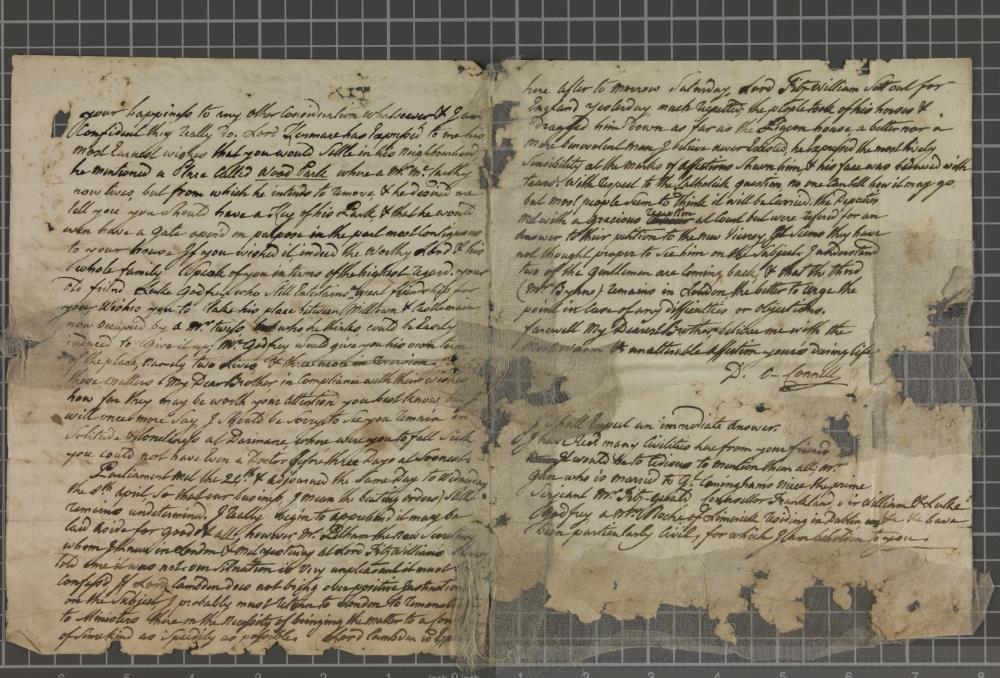 your happiness to any other Consideration whatsoever & I am
Confident they really do. Lord Kenmare has Expressed to me his
most Earnest wishes that you would Settle in his Neighbourhood
he mentioned a Place Called Wood Park where a Mr. McCarthy
now lives, but from which he intends to remove, & he desired me
tell you you should have a Key of his Park & that he would
even have a Gate opend on purpose in the part most Contiguous
to your house If you wished it, indeed the worthy Lord & his
whole family Speak of you in terms of the highest regard. your
old friend Luke Godfrey who still Entertains great friendship for
you Wishes you to take his place between Milltown & Castlemain
now occupied by a Mr. who he thinks could be Easily
induced to Give it up, Mr. Godfrey would give you his own term
of the place, namely two Lives & three more in
these matters My Dear Brother in Compliance with their wishes
how far they may be worth your attention you best know, but
will once more Say I should be Sorry to See you remain in
Solitude & loneliness at Darinane where were you to fall Sick
you Could not have Even a Doctor before three Days at Soonest
Parliament met the 24th & adjourned the Same Day to Wednesday
the 8th April so that our business I mean the beating orders Still
remains undetermined. I really begin to apprehend it may be
laid aside for good & all, however Mr. Pelham the new Secretary
whom I knew in London & met yesterday at Lord FitzWilliams
told me it was not. our Situation is very unpleasant it must
Confess'd If Lord Cambden does not bring over positive Instructions
on the Subject I probably must return to London to remonstrate
to Ministers there on the Necessity of bringing the matter to a
of Some kind as Speedily as possible. Lord Cambden is
here after to morrow Saturday, Lord FitzWilliam Set out for
England yesterday much regretted, the people took off his horses &
Dragged him Down as far as the Pigeon house, a better nor a
more benevolent man I believe never Existed he Expressed the most lively
Sensibility at the marks of affection Shewn him, & his face was bedewed with
tears. With respect to the Catholick question no one Can tell how it may go
but most people seem to think it will be Carried. the Deputies
met with a Gracious reception at Court but were referd for an
answer to their petition to the new Viceroy. It Seems they have
not thought proper to See him on the Subject, I understand
two of the Gentlemen are Coming back, & that the third
(Mr. Byrne) remains in London the better to Urge the
point in Case of any difficulties or objections.
farewell My Dearest Brother believe me with the
most warm & unalterable affection yours During life
D. O Connell
I Shall Expect an immediate answer.
I have recd. many Civilities here from your friends,
It would be to tedious to mention them all, Mr.
who is married to Gl. Coninghams niece the prime
Serjeant Mr. Fitz-Gerald Counsellor Frankland Sir William & Luke
Godfrey a Mr. Roche of Limerick residing in Dublin have
been particularly Civil, for which I am beholden to you.